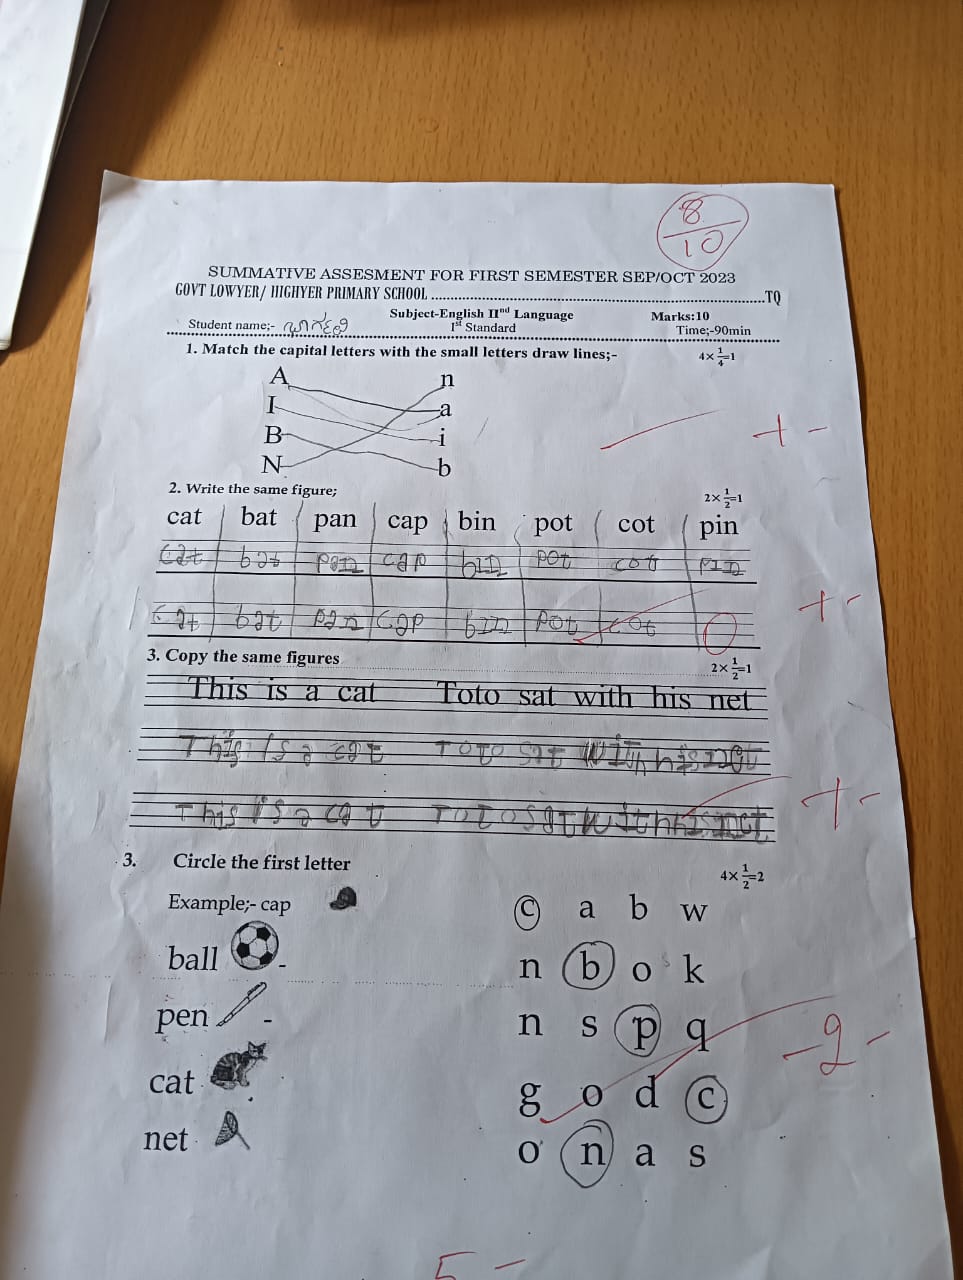 8/10
SUMMATIVE ASSESMENT FOR FIRST SEMESTER SEP/OCT 2023
GOVT LOWYER/ HIGHYER PRIMARY SCHOOL ................TQ
Subject-English IInd Language Marks:10
Student name;- 1st Standard Time;-90min
1. Match the capital letters with the small letters draw lines;- 4×1/4=1
A n
I a
B i
N b
+ -
2. Write the same figure; 2×1/2=1
cat bat pan cap bin pot cot pin
cat bat pan cap bin pot cot pin
cat bat pan cap bin pot cot
+ -
3. Copy the same figures 2×1/2=1
This is a cat Toto sat with his net
This is a cat Toto sat with his net
This is a cat Toto sat with his net
+ -
3. Circle the first letter 4×1/2=2
Example;- cap c a b w
ball - n b o k
pen - n s p q
- 2 -
cat g o d c
net o n a s
5 -